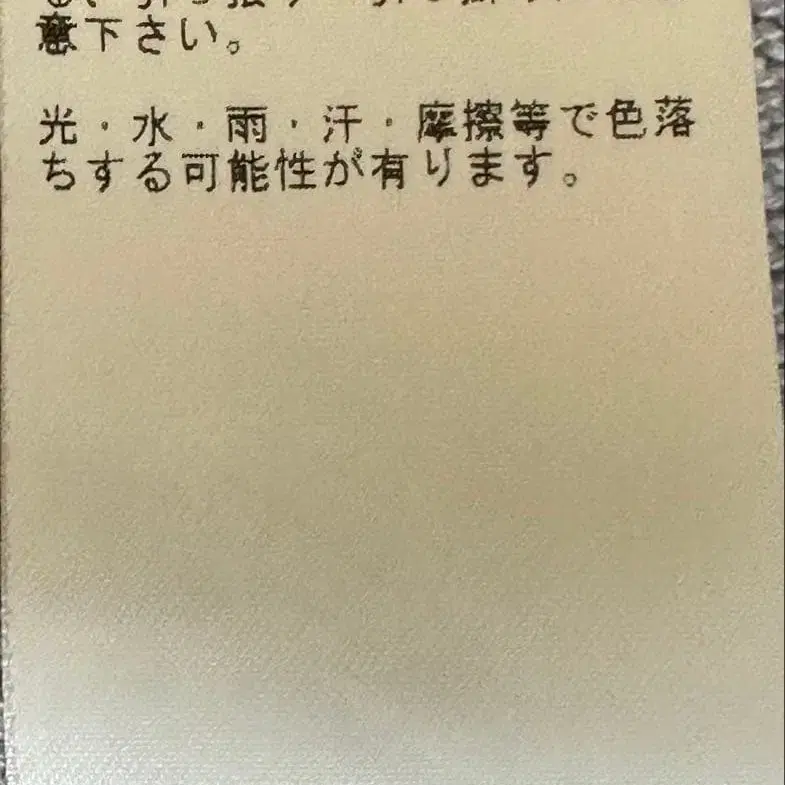 意下さい。
光・水・雨・汗・摩擦等で色落
ちする可能性が有ります。